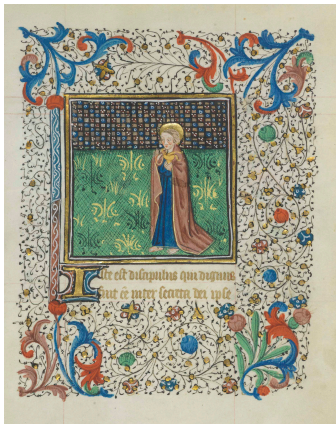 Iste est discipulus qui dignus
fuit eē inter secreta dei ipse